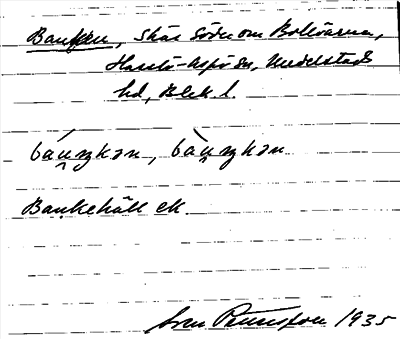 Bauken, skär söder om Bollöarna,
Hasslö-Aspö sn, Medelstads
hd, Blek. l.
báu̯ŋkən, bàu̯ŋkən
Baukehäll ek
Sven Benson 1935